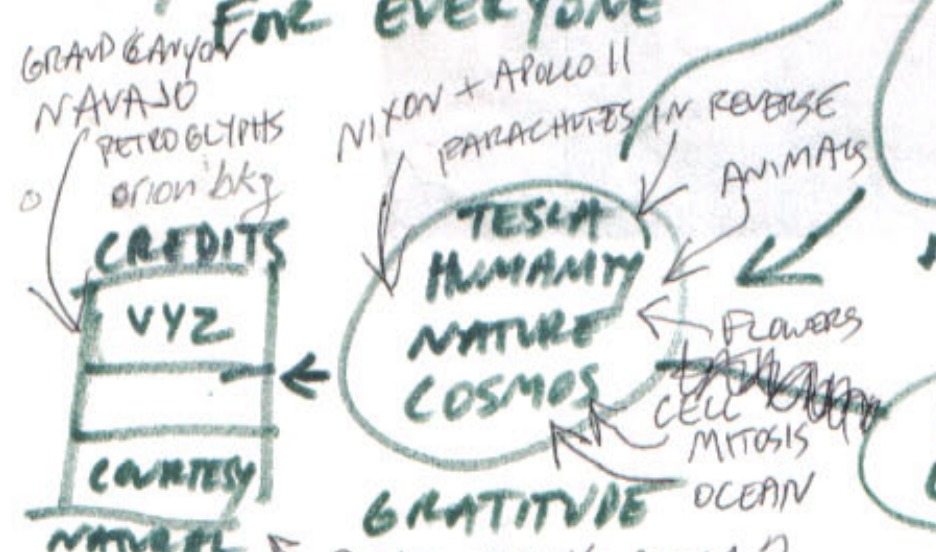 FOR EVERYONE
GRAND CANYON
NAVAJO
PETROGLYPHS
orion bkg
CREDITS
VYZ
COURTESY
NATURE
NIXON + APOLLO 11
PARACHUTES IN REVERSE
ANIMALS
TESLA
HUMANITY
NATURE
COSMOS
FLOWERS
CELL
MITOSIS
OCEAN
GRATITUDE